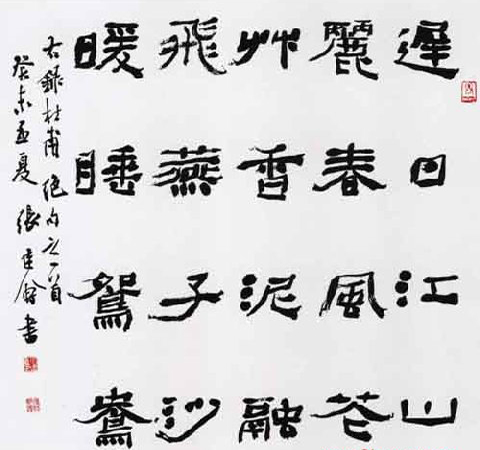 遲日江山
麗春風花
艸香泥融
飛燕子沙
暖睡鴛鴦
右録杜甫絕句之一首
癸未孟夏張書